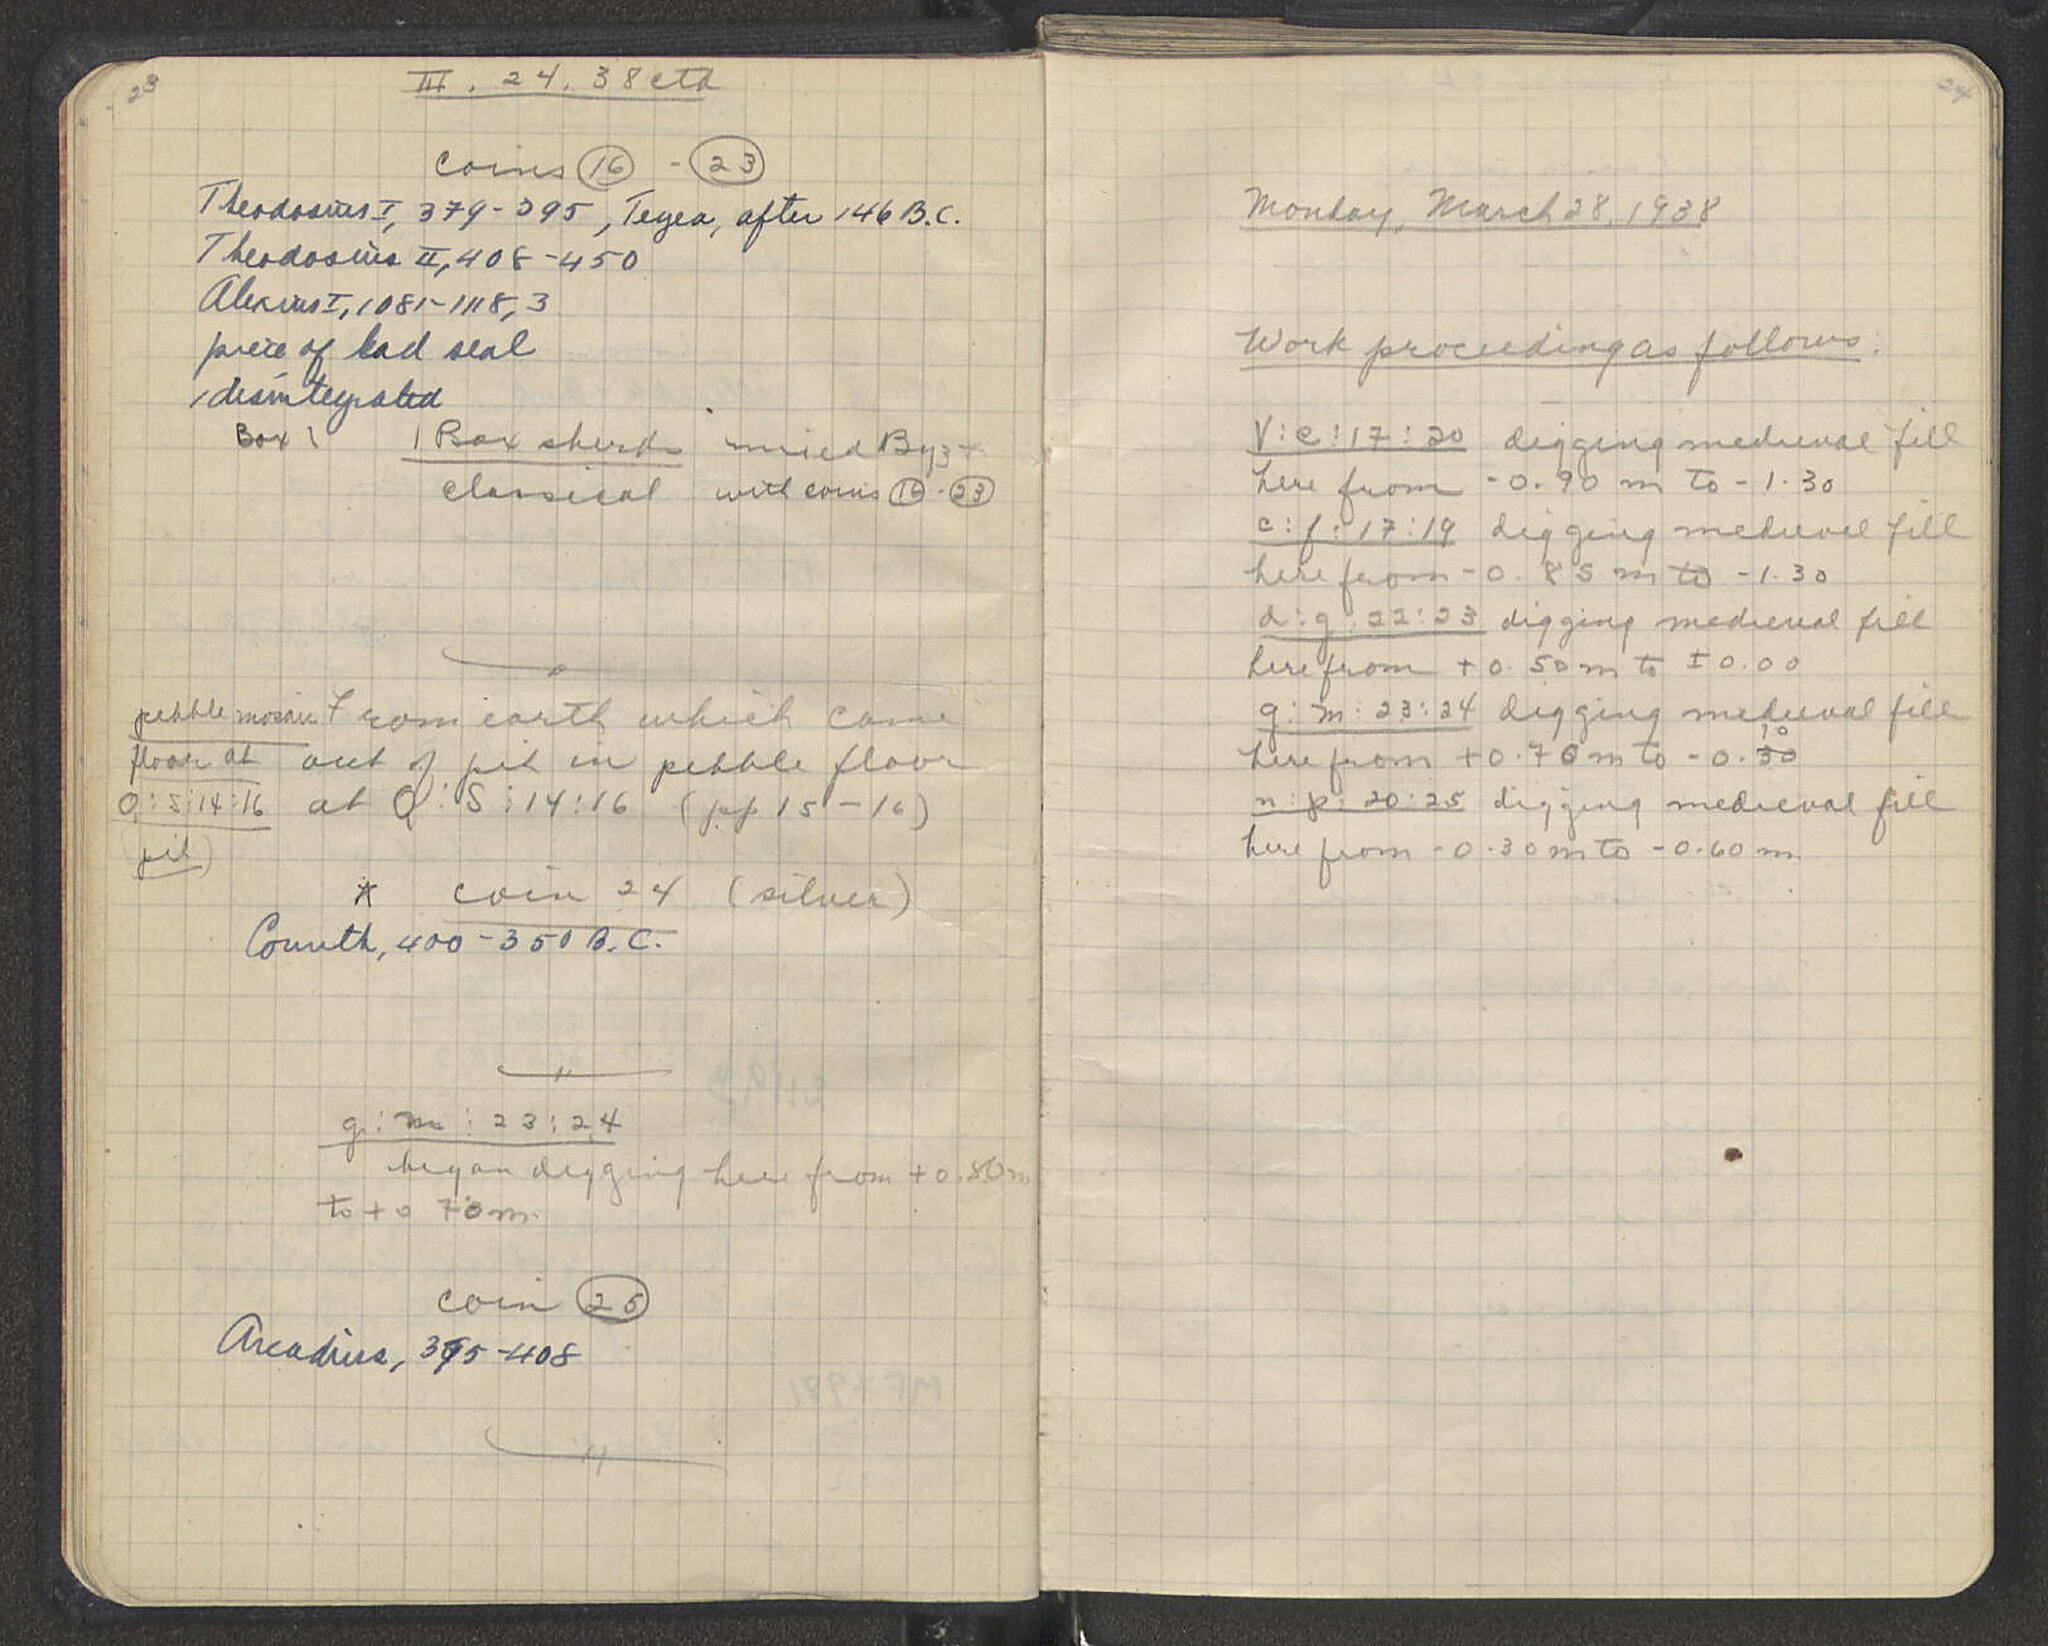 23
III. 24. 38 ctd
coins 16 - 23
Theodosius I, 379-395, Tegea, after 146 B.C.
Theodosius II, 408-450
Alexius I, 1081-1118, 3
piece of lead seal
1 disintegrated
Box 1 1 Box sherds mixed Byz +
classical with coins 16 - 23
pebble mosaic From earth which came
floor at out of pit in pebble floor
Q:S:14:16 at Q:S:14:16 (pp 15-16)
(pit)
* coin 24 (silver)
Corinth, 400-350 B.C.
g:m:23:24
began digging here from +0.80 m
to +0.70 m.
coin 25
Arcadius, 395-408
24
Monday, March 28, 1938
Work proceeding as follows:
V:c:17:20 digging medieval fill
here from -0.90 m to -1.30
c:f:17:19 digging medieval fill
here from -0.85 m to -1.30
d:g:22:23 digging medieval fill
here from +0.50 m to ±0.00
g:m:23:24 digging medieval fill
here from +0.70 m to -0.30 10
n:p:20:25 digging medieval fill
here from -0.30 m to -0.60 m